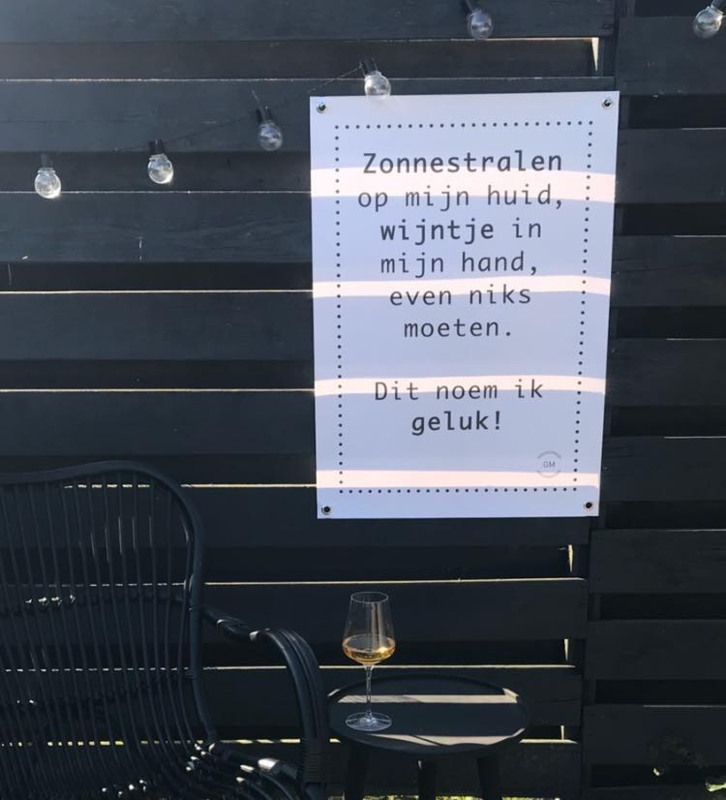 Zonnestralen
op mijn huid,
wijntje in
mijn hand,
even niks
moeten.
Dit noem ik
geluk!
GM